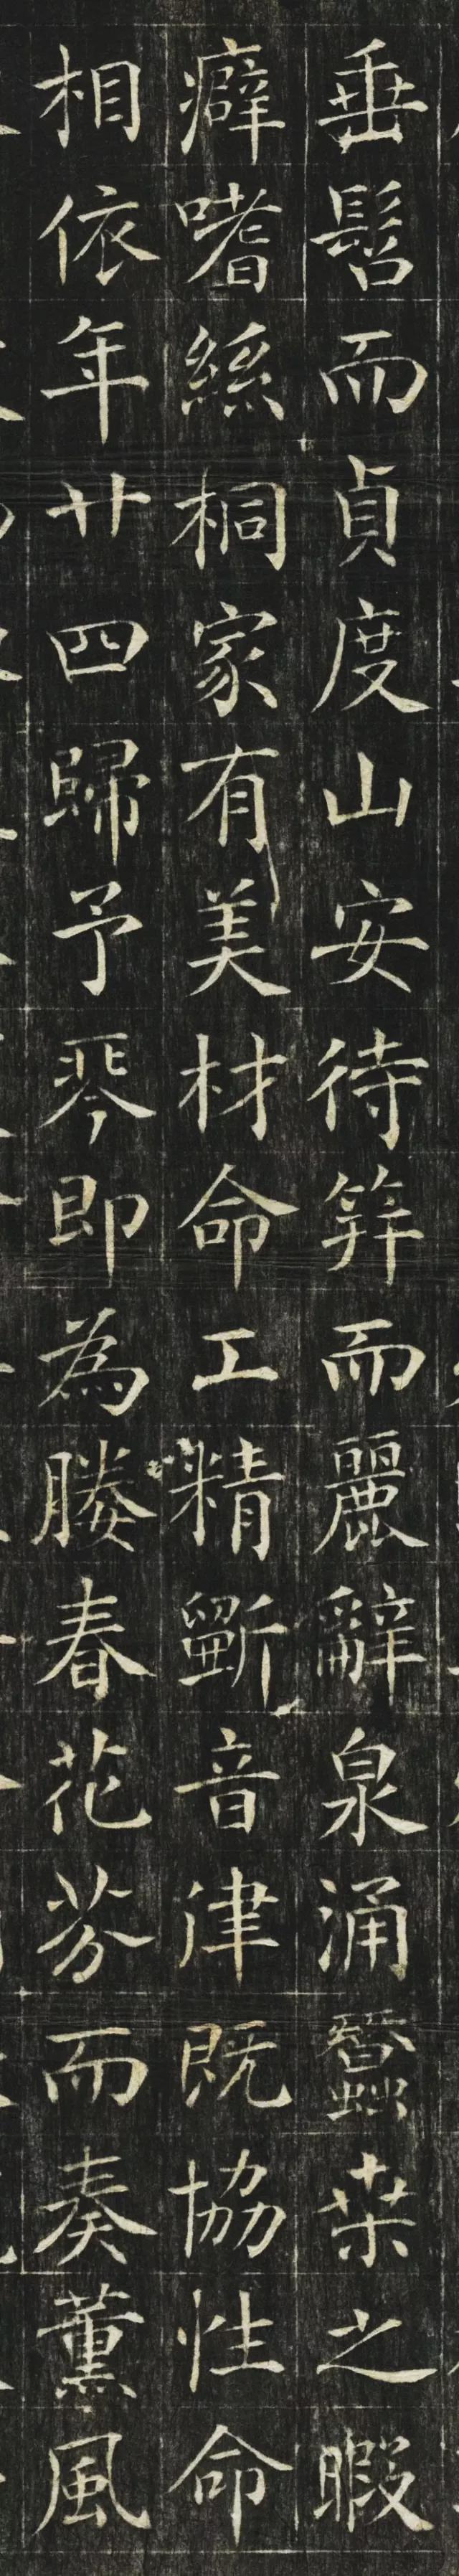 垂髫而貞度山安待笄而麗辭泉涌蠶桒之暇
癖嗜絲桐家有美材命工精斵音律既協性命
相依年廿四歸予琴即為媵春花芬而奏薰風